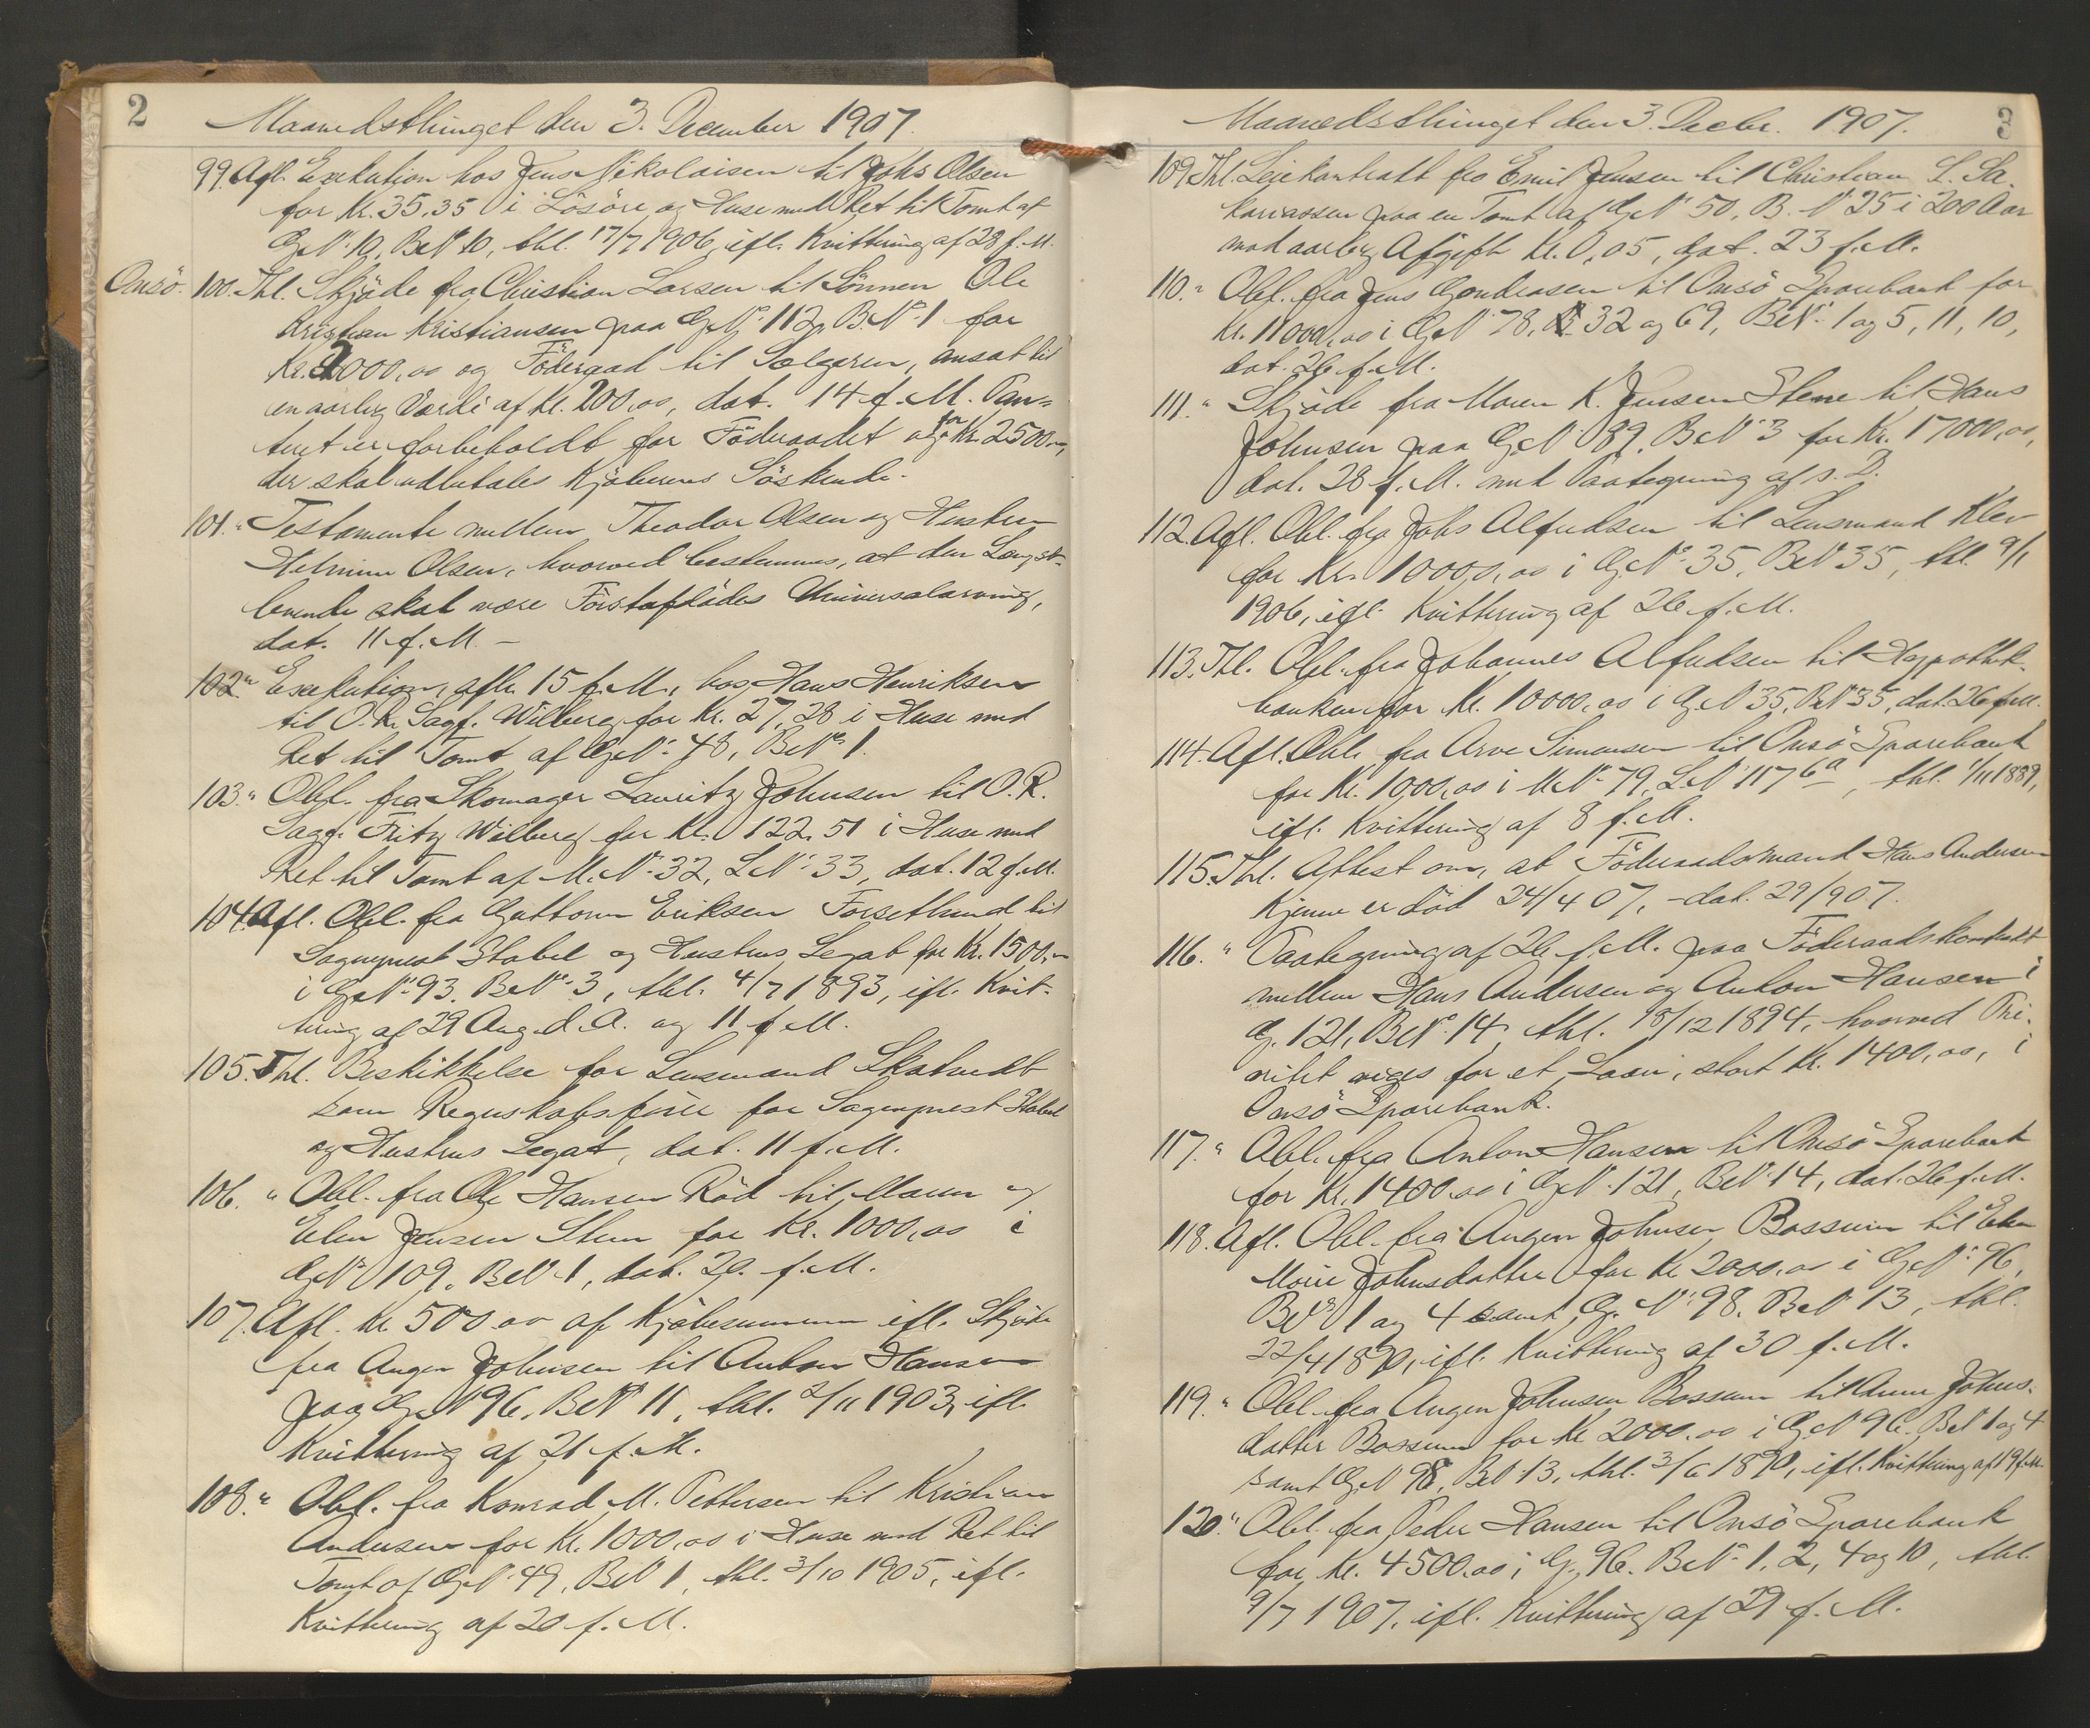 2
Maanedsthinget den 3. December 1907.
99. Afl. Exekution hos Jens Nikolaisen til Johs Olsen
for Kr. 35,35 i Lösöre og Huse med Ret til Tomt af
G.N. 10, B.N. 10, thl. 17/7 1906, ifl. Kvittering af 28 f. M.
Onsö. 100. Thl. Skjöde fra Christian Larsen til Sönnen Ole
Kristian Kristiansen paa G.No. 112, B.No. 1 for
Kr. 2000,00 og Föderaad til Sælgeren, ansat til
en aarlig Værdi af Kr. 200,00, dat. 14 f. M. Pan-
teret er forbeholdt for Föderaadet og for Kr. 2500,00,
der skal udbetales Kjöberens Söskende.
101. " Testamente mellem Theodor Olsen og Hustru
Helmine Olsen, hvorved bestemmes, at den Længst-
levende skal være Förstafdödes Universalarving,
dat. 11 f. M. -
102 " Exekution, afh. 15 f. M., hos Hans Henriksen
til O.R. Sagf. Wilberg for Kr. 27,28 i Huse med
Ret til Tomt af G.N. 48, B.No. 1.
103. " Obl. fra Skomager Lauritz Johnsen til O.R.
Sagf. Fritz Wilberg for Kr. 122,51 i Huse med
Ret til Tomt af M.N. 32, L.N. 33, dat. 12 f. M.
104. Afl. Obl. fra Guttorm Eriksen Forsetlund til
Sogneprest Stabel og Hustrus Legat for Kr. 1500,00
i G.No. 93, B.No. 3, thl. 4/7 1893, ifl. Kvit-
tering af 29 Aug. d. A. og 11 f. M.
105. Thl. Beskikkelse for Lensmand Skatvedt
som Regnskabsförer for Sogneprest Stabel
og Hustrus Legat, dat. 11 f. M.
106. " Obl. fra Ole Hansen Röd til Maren og
Elen Jensen Stene for Kr. 1000,00 i
G.No. 109, B.N. 1, dat. 29. f. M.
107. Afl. Kr. 500,00 af Kjöbesummen ifl. Skjöde
fra Augen Johnsen til Anton Hansen
paa G.N. 96, B.No. 11, thl. 2/11 1903, ifl.
Kvittering af 21 f. M.
108. " Obl. fra Konrad M. Pettersen til Kristian
Andersen for Kr. 1000,00 i Huse med Ret til
Tomt af G.N. 49, B.N. 1, thl. 3/10 1905, ifl.
Kvittering af 20 f. M.
Maanedsthinget den 3. Decbr. 1907. 3
109. Thl. Leiekontrakt fra Emil Jensen til Christian L. Sa-
kariassen paa en Tomt af G.No. 50, B.No. 25 i 200 Aar
mod aarlig Afgift Kr. 0,05, dat. 23 f. M.
110. " Obl. fra Jens Gondrosen til Onsö Sparebank for
Kr. 11000,00 i G.No. 78, 32 og 69, B.No. 1 og 5, 11, 10,
dat. 26 f. M.
111. " Skjöde fra Maren K. Jensen Stene til Hans
Johnsen paa G.No. 89, B.No. 3 for Kr. 17000,00,
dat. 28 f. M. med Paategning af s. D.
112. Afl. Obl. fra Johs Alfredsen til Lensmand Klev
for Kr. 1000,00 i G.No. 35, B.N. 35, thl. 9/1
1906, ifl. Kvittering af 26 f. M.
113. Thl. Obl. fra Johannes Alfredsen til Hypothek-
banken for Kr. 10000,00 i G.N. 35, B.N. 35, dat. 26 f. M.
114. Afl. Obl. fra Arve Simensen til Onsö Sparebank
for Kr. 1000,00 i M.No. 79, L.N. 117 6a, thl. 1/11 1889,
ifl. Kvittering af 8 f. M.
115. Thl. Attest om, at Föderaadsmand Hans Andersen
Kjenne er död 24/4 07, - dat. 29/9 07.
116. " Paategning af 26 f. M. paa Föderaadskontrakt
mellem Hans Andersen og Anton Hansen i
G. 121, B.No. 14, thl. 18/12 1894, hvorved Pri-
oritet viges for et Laan, stort Kr. 1400,00, i
Onsö Sparebank.
117. " Obl. fra Anton Hansen til Onsö Sparebank
for Kr. 1400,00 i G.No. 121, B.N. 14, dat. 26 f. M.
118. Afl. Obl. fra Augen Johnsen Bossum til Elen
Marie Johnsdatter for Kr 2000,00 i G.No. 96,
B.No. 1 og 4 samt G.No. 98, B.No. 13, thl.
22/4 1890, ifl. Kvittering af 30 f. M.
119. " Obl. fra Augen Johnsen Bossum til Anne Johns-
datter Bossum for Kr 2000,00 i G.N. 96, B.N. 1 og 4
samt G.N. 98, B.N. 13, thl. 3/6 1890, ifl. Kvittering af 19 f. M.
120. " Obl. fra Peder Hansen til Onsö Sparebank
for Kr. 4500,00 i G. 96, B.No. 1, 2, 4 og 10, thl.
9/7 1907, ifl. Kvittering af 29 f. M.